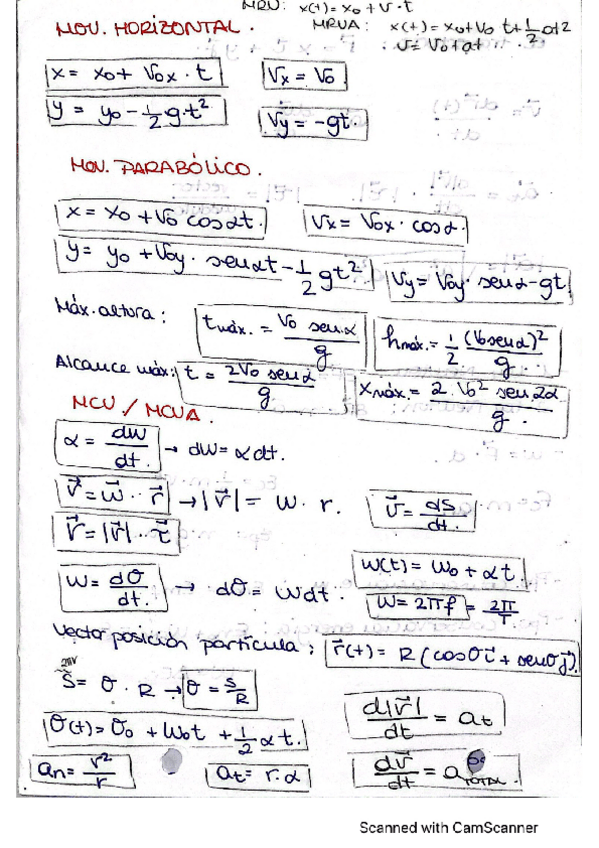 MRU: x(t) = x₀ + v · t
MOV. HORIZONTAL.   MRUA: x(t) = x₀ + v₀ t + 1/2 at2
v = v₀ + at
x = x₀ + v₀x · t   Vx = V₀
y = y₀ - 1/2 g·t²   Vy = -gt.
MOV. PARABÓLICO.
x = x₀ + V₀ cos αt.   Vx = V₀x · cos α.
y = y₀ + V₀y · sen αt - 1/2 gt²   Vy = V₀y · sen α - gt.
Máx. altura: t máx. = V₀ sen α / g   h máx. = 1/2 (V₀ sen α)² / g
Alcance máx: t = 2V₀ sen α / g   X máx = 2 · V₀² sen 2α / g.
MCU / MCUA.
α = dw/dt. → dw = α dt.
V⃗ = w⃗ · r⃗ → |V⃗| = w · r.   v⃗ = ds/dt.
V⃗ = |V⃗| · τ⃗
w(t) = w₀ + αt
w = dθ/dt. → dθ = w dt.   w = 2πf = 2π/T
Vector posición partícula: r⃗(t) = R (cos θ i⃗ + sen θ j⃗).
S = θ · R → θ = s/R
d|v⃗|/dt = at
θ(t) = θ₀ + w₀t + 1/2 αt.
an = v²/r   at = r·α   dv⃗/dt = a TOTAL.
Scanned with CamScanner